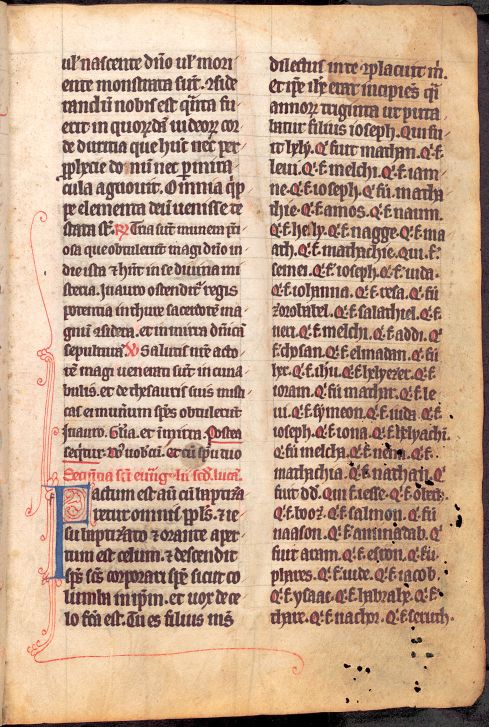 ul' nascente dño ul' mori
ente monstrata sūt. ⁊ side
randū nobis est q̃nta fu
erit in quorūdā iudeorꝫ cor
de duritia que hūc nec per
p̱phecie donum nec p̱ mira
cula agnouit. Omnia q̃p
pe elementa deū uenisse te
stata sūt. R̷ Tria sūt munera p̃ti
osa que obtulerūt magi dño in
die ista ⁊ hñt in se diuina mi
steria. In auro ostenditr̄ regis
potentia in thure sacerdotē ma
gnū ⁊sidera. et in mirra dñicā
sepulturā. V̷ Salutis nr̄e acto
rē magi uenerati sūt in cuna
bulis. et de thesauris suis misti
cas ei munerum spēs obtulerūt
In auro. Gl'ia. et in mirra. Postea
sequitr̄. Dñs uobcū. et cū spū tuo
Sequētia scī euāg. sc̄dm lucā.
Factum est aū cū baptiza
retur omnis ppl's. ⁊ ie
su baptizato ⁊ orante aper
tum est celum. ⁊ descendit
sp̄s sc̄s corporali spē sicut co
lumba in ip̄m. et uox de ce
lo fc̄a est. Tu es filius m̄s
dilectus in te ⁊placuit m̄.
et ip̄e ih̄c erat incipiēs q̃i
annorꝫ triginta ut puta
batur filius ioseph. Qui fu
it hely. Q̇ fuit mathan. Q̇. f̄.
leui. Q̇. f̄. melchi. Q̇. f̄. iam
ne. Q̇. f̄. ioseph. Q̇. fū. matha
thie. Q̇. f̄. amos. Q̇. f̄. naum.
Q̇. f̄. hesly. Q̇. f̄. nagge. Q̇. f̄. ma
ath. Q̇. f̄. mathathie. Qui. f̄.
semei. Q̇. f̄. ioseph. Q̇. f̄. iuda.
Q̇. f̄. iohanna. Q̇. f̄. resa. Q̇. fū
zorobabel. Q̇. f̄. salathiel. Q̇. f̄.
neri. Q̇. f̄. melchi. Q̇. f̄. addi. Q̇.
f̄. chysan. Q̇. f̄. elmadan. Q̇. fū
her. Q̇. f̄. ihū. Q̇. f̄. helyezer. Q̇. f̄.
ioram. Q̇. fū mathat. Q̇. f̄. le
ui. Q̇. f̄. symeon. Q̇. f̄. iuda. Q̇. f̄.
ioseph. Q̇. f̄. iona. Q̇. f̄. helyachī.
Q̇. fū melcha. Q̇. f̄. Q̇. f̄.
mathathia. Q̇. f̄. nathan. Q̇.
fuit dd̄. Q̇. f̄. iesse. Q̇. f̄. obeth.
Q̇. f̄. booz. Q̇. f̄. salmon. Q̇. fū
naason. Q̇. f̄. aminadab. Q̇.
fuit aram. Q̇. f̄. esron. Q̇. fū
phares. Q̇. f̄. iude. Q̇. f̄. iacob.
Q̇. f̄. ysaac. Q̇. f̄. habrahe. Q̇. f̄.
thare. Q̇. f̄. nachor. Q̇. f̄. seruch.